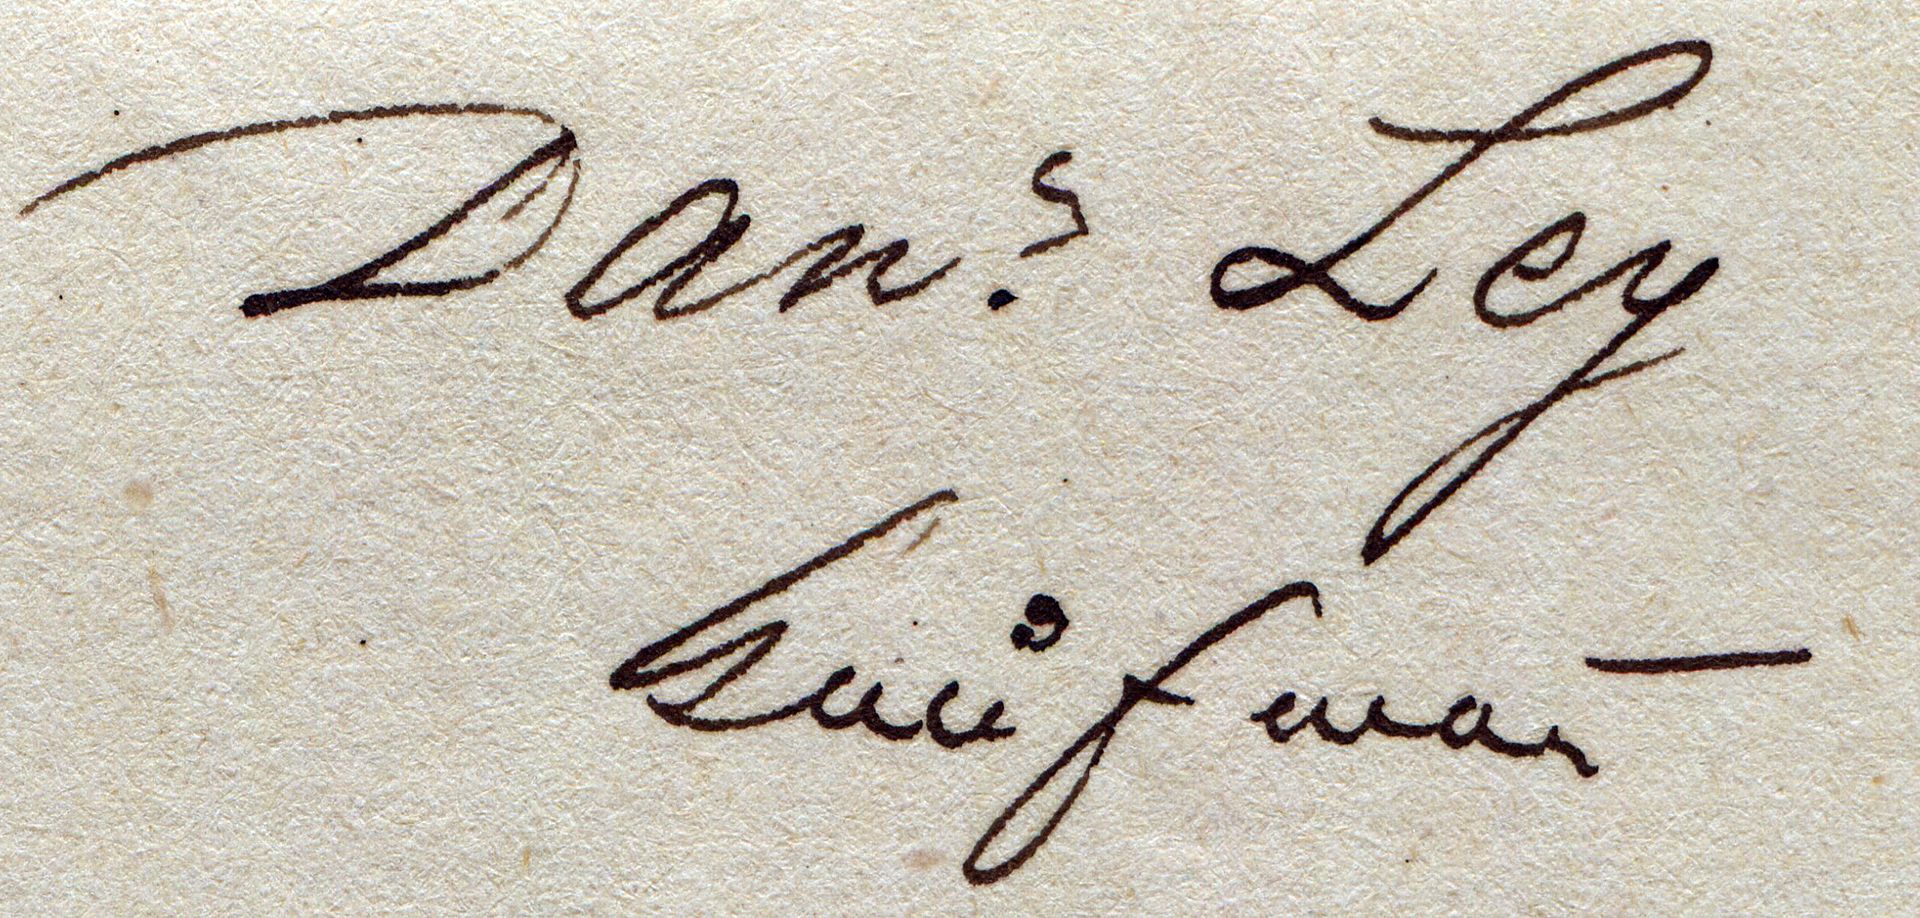 Dan: Ley
Kaufman̄